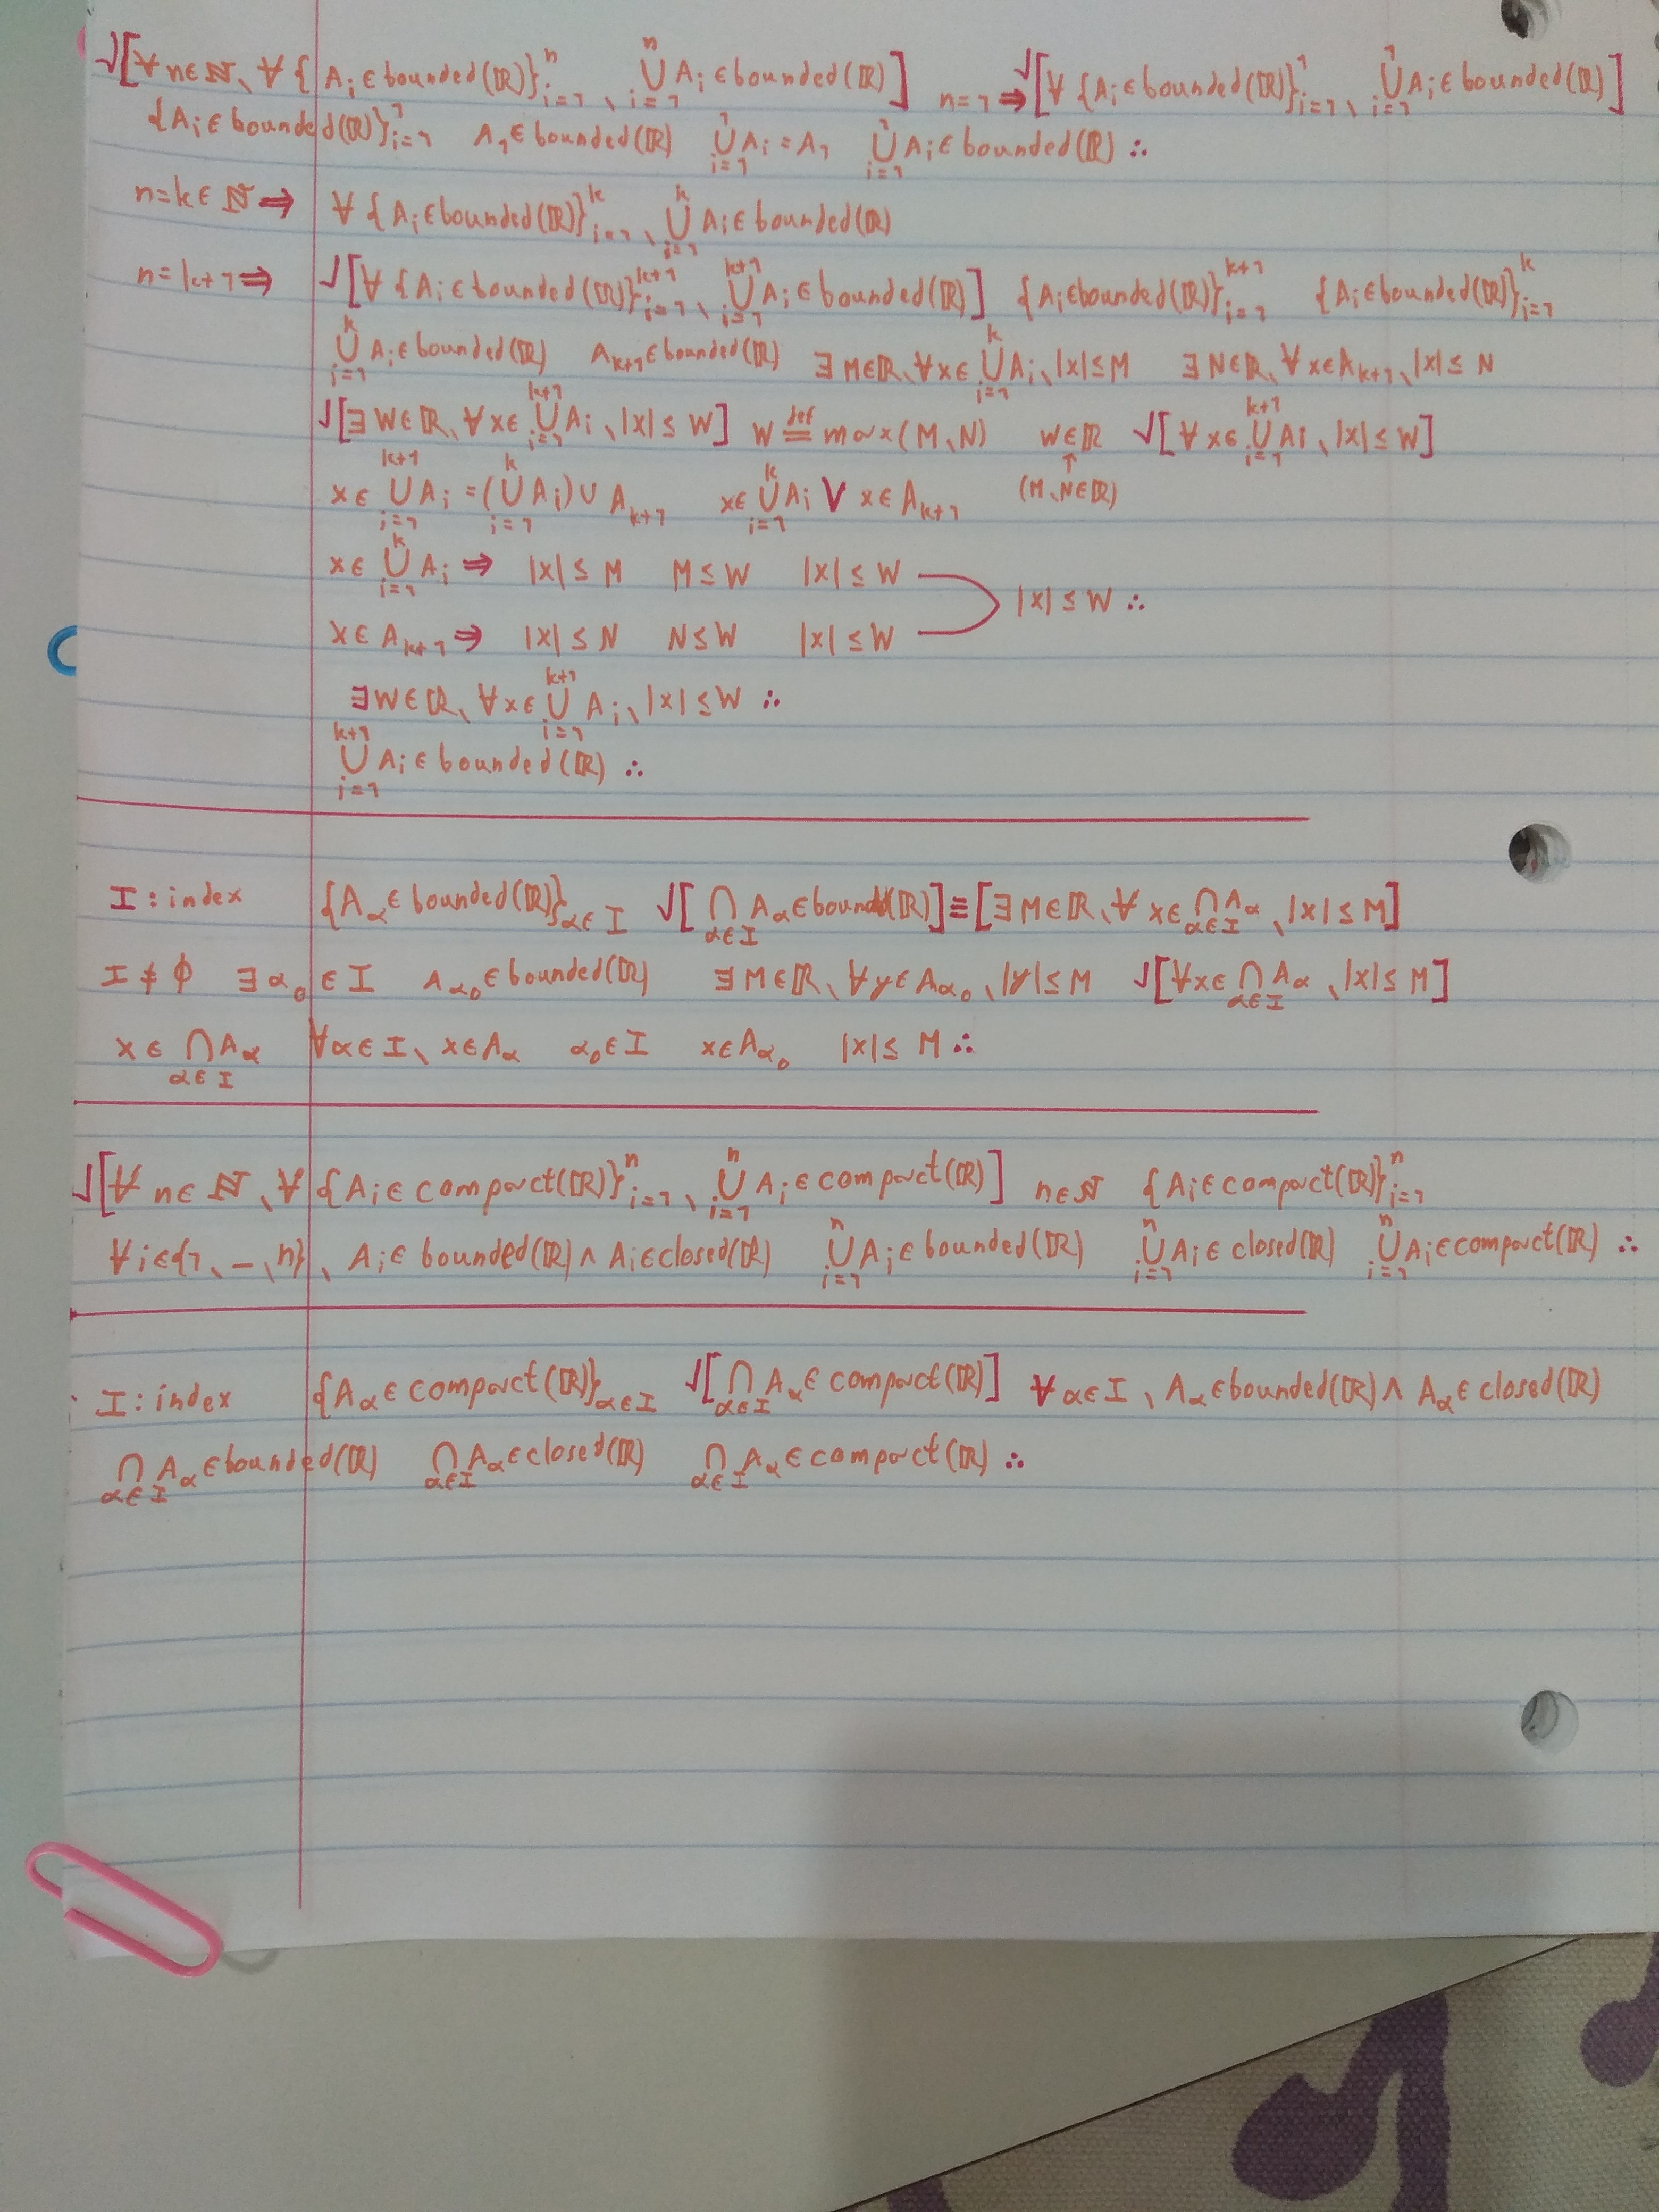 √[∀ n∈ℕ、∀ {A_i ∈ bounded(ℝ)}_{i=1}^{n}、⋃_{i=1}^{n} A_i ∈ bounded(ℝ)] n=1 ⇒ √[∀ {A_i ∈ bounded(ℝ)}_{i=1}^{1}、⋃_{i=1}^{1} A_i ∈ bounded(ℝ)]
{A_i ∈ bounded(ℝ)}_{i=1}^{1} A_1 ∈ bounded(ℝ) ⋃_{i=1}^{1} A_i = A_1 ⋃_{i=1}^{1} A_i ∈ bounded(ℝ) ∴
n=k∈ℕ ⇒ ∀ {A_i ∈ bounded(ℝ)}_{i=1}^{k}、⋃_{i=1}^{k} A_i ∈ bounded(ℝ)
n=k+1 ⇒ √[∀ {A_i ∈ bounded(ℝ)}_{i=1}^{k+1}、⋃_{i=1}^{k+1} A_i ∈ bounded(ℝ)] {A_i ∈ bounded(ℝ)}_{i=1}^{k+1} {A_i ∈ bounded(ℝ)}_{i=1}^{k}
⋃_{i=1}^{k} A_i ∈ bounded(ℝ) A_{k+1} ∈ bounded(ℝ) ∃ M∈ℝ、∀ x∈ ⋃_{i=1}^{k} A_i、|x| ≤ M ∃ N∈ℝ、∀ x∈A_{k+1}、|x| ≤ N
√[∃ W∈ℝ、∀ x∈ ⋃_{i=1}^{k+1} A_i、|x| ≤ W] W ≝ max(M、N) W∈ℝ √[∀ x∈ ⋃_{i=1}^{k+1} A_i、|x| ≤ W]
↑
x∈ ⋃_{i=1}^{k+1} A_i = (⋃_{i=1}^{k} A_i) ∪ A_{k+1} x∈ ⋃_{i=1}^{k} A_i ∨ x∈ A_{k+1} (M、N∈ℝ)
x∈ ⋃_{i=1}^{k} A_i ⇒ |x| ≤ M M ≤ W |x| ≤ W
|x| ≤ W ∴
x∈ A_{k+1} ⇒ |x| ≤ N N ≤ W |x| ≤ W
∃ W∈ℝ、∀ x∈ ⋃_{i=1}^{k+1} A_i、|x| ≤ W ∴
⋃_{i=1}^{k+1} A_i ∈ bounded(ℝ) ∴
I : index {A_α ∈ bounded(ℝ)}_{α∈I} √[⋂_{α∈I} A_α ∈ bounded(ℝ)] ≡ [∃ M∈ℝ、∀ x∈ ⋂_{α∈I} A_α、|x| ≤ M]
I ≠ ϕ ∃ α_0 ∈ I A_{α_0} ∈ bounded(ℝ) ∃ M∈ℝ、∀ y∈ A_{α_0}、|y| ≤ M √[∀ x∈ ⋂_{α∈I} A_α、|x| ≤ M]
x∈ ⋂_{α∈I} A_α ∀ α∈I、x∈A_α α_0∈I x∈A_{α_0} |x| ≤ M ∴
√[∀ n∈ℕ、∀ {A_i ∈ compact(ℝ)}_{i=1}^{n}、⋃_{i=1}^{n} A_i ∈ compact(ℝ)] n∈ℕ {A_i ∈ compact(ℝ)}_{i=1}^{n}
∀ i∈{1、—、n}、A_i ∈ bounded(ℝ) ∧ A_i ∈ closed(ℝ) ⋃_{i=1}^{n} A_i ∈ bounded(ℝ) ⋃_{i=1}^{n} A_i ∈ closed(ℝ) ⋃_{i=1}^{n} A_i ∈ compact(ℝ) ∴
I : index {A_α ∈ compact(ℝ)}_{α∈I} √[⋂_{α∈I} A_α ∈ compact(ℝ)] ∀ α∈I、A_α ∈ bounded(ℝ) ∧ A_α ∈ closed(ℝ)
⋂_{α∈I} A_α ∈ bounded(ℝ) ⋂_{α∈I} A_α ∈ closed(ℝ) ⋂_{α∈I} A_α ∈ compact(ℝ) ∴